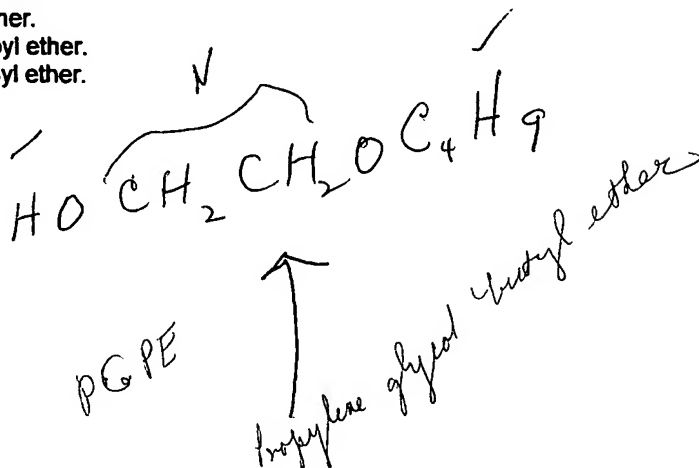 her.
pyl ether.
yl ether.
N
HO CH₂ CH₂ O C₄ H₉
PGPE
Propylene glycol butyl ether